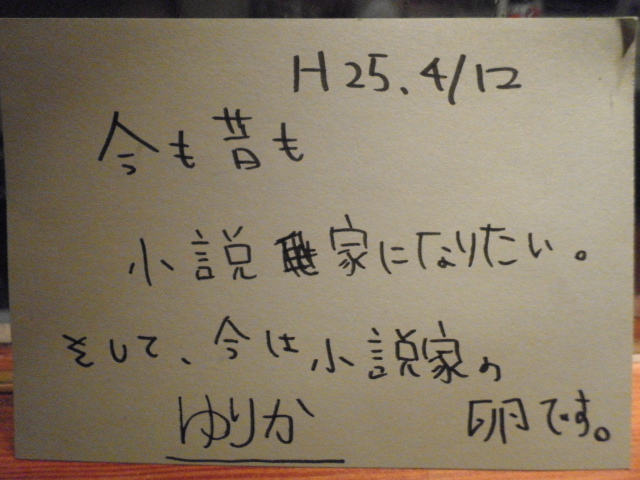 H25.4/12
今も昔も
小説家になりたい。
そして、今は小説家の
卵です。
ゆりか